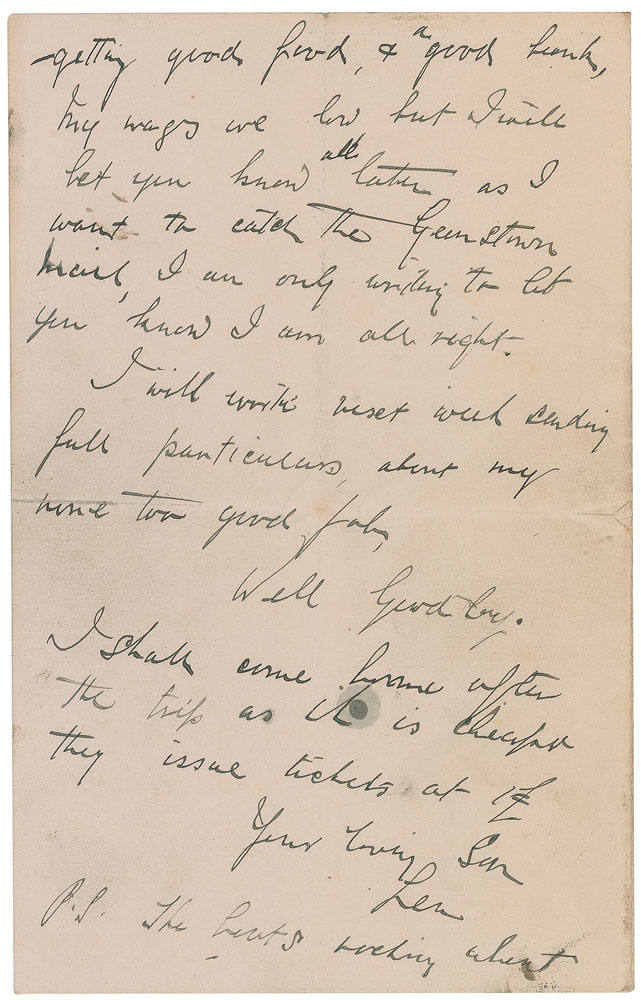 getting good food, & a good bunk,
My wages are low but I will
let you know all later as I
want to catch the Queenstown
mail, I am only writing to let
you know I am all right.
I will write next week sending
full particulars, about my
none too good job,
Well Good bye.
I shall come home after
the trip as it is cheaper
they issue tickets at
Your loving Son
Len
P.S. The boats rocking about